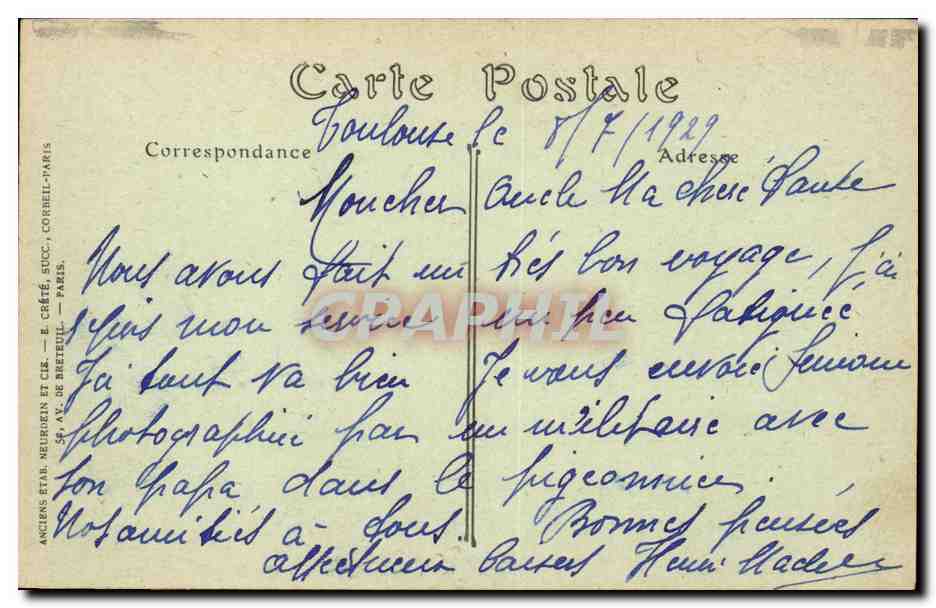 Carte Postale
Toulouse le 8/7/1929
Correspondance
Adresse
Moncher oncle Ma chere Tante
Nous avons fait un très bon voyage, j'ai
repris mon service un peu fatiguée
Ici tout va bien Je vous envoie Simone
photographiée par un militaire avec
son papa dans le pigeonnier.
Nos amitiés à tous. Bonnes pensées
affectueux baisers Henri
ANCIENS ÉTAB. NEURDEIN ET CIE. — E. CRÉTÉ, SUCC., CORBEIL-PARIS
52, AV. DE BRETEUIL. — PARIS.
GRAPHIL